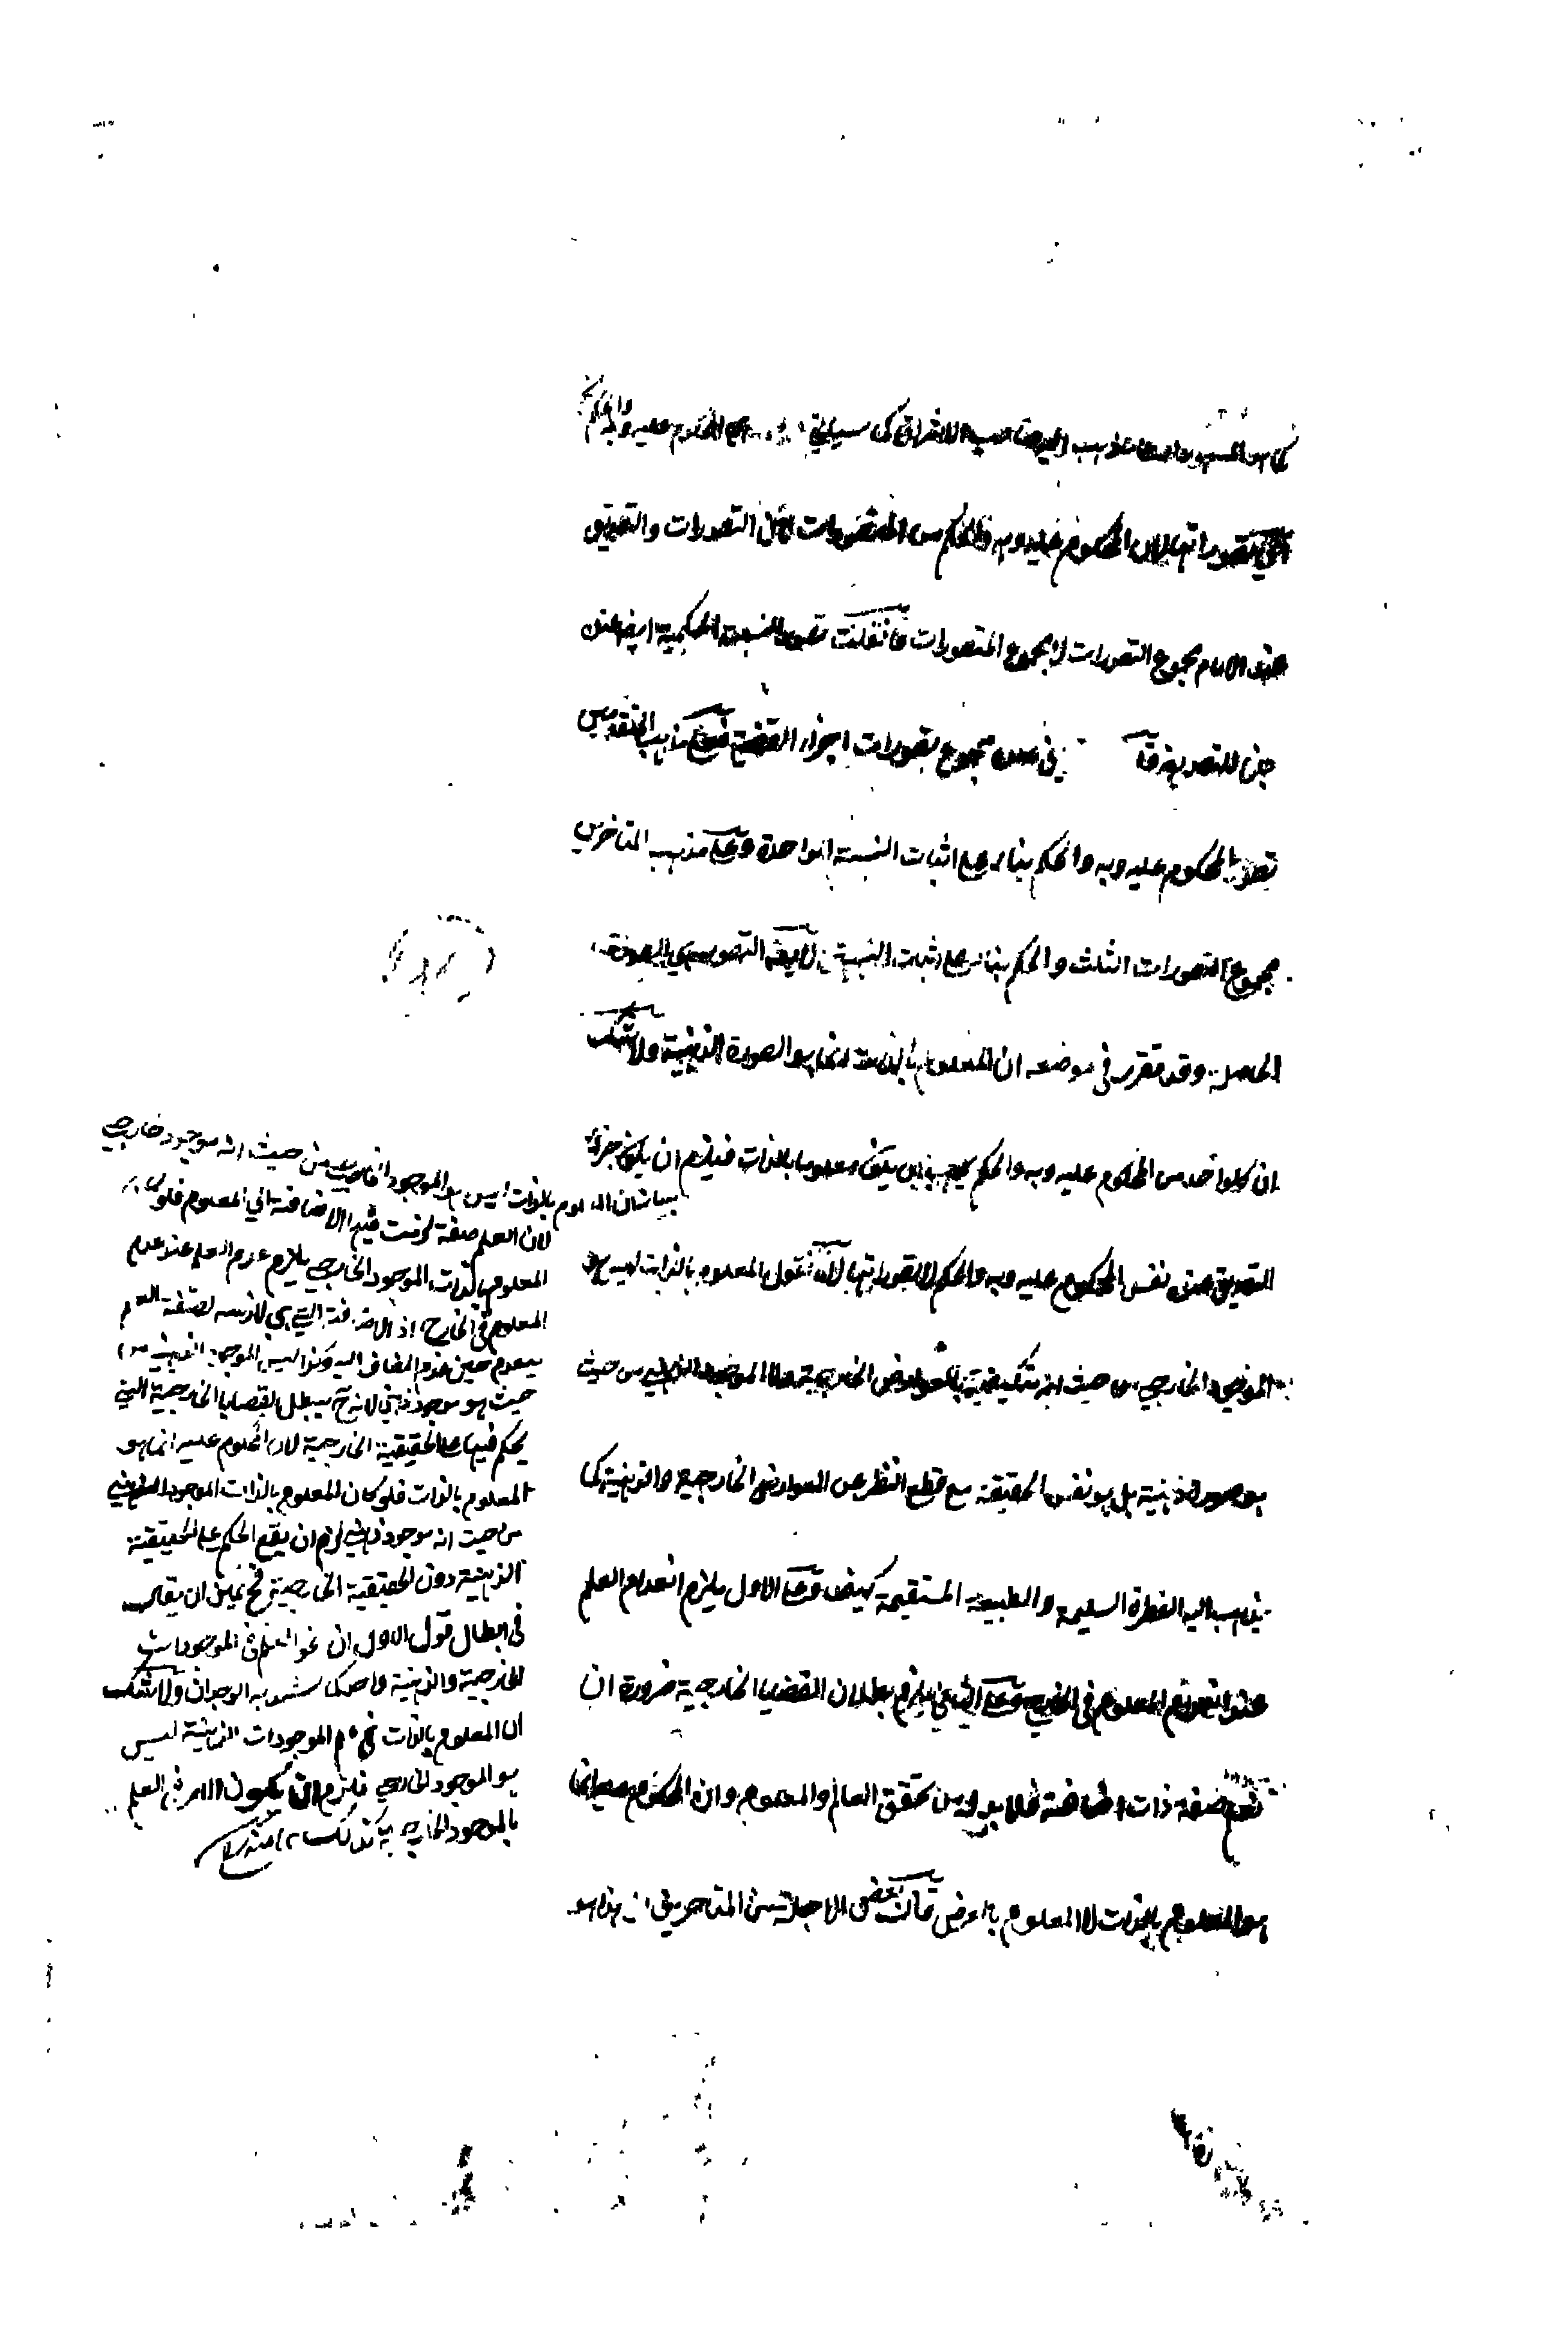 كما هو المشهور واما ما ذهب اليه صاحب الاشراق كما سيأتي المحكوم عليه وبه والحكم
تصوراتها لان المحكوم عليه وبه والحكم من المتصورات لا من التصورات والتصديق
عند الامام مجموع التصورات لا مجموع المتصورات فان قلت تصور النسبة الحكمية ايضا عنده
جزء للتصديق مجموع تصورات اجزاء القضية فعلى مذهب المتقدمين
تصور المحكوم عليه وبه والحكم بناء على اثبات النسبة الواحدة وعلى مذهب المتاخرين
مجموع التصورات الثلث والحكم بناء على اثبات النسبة لا يقال التصور هي الصورة
الحاصلة وقد تقرر في موضعه ان المعلوم بالذات انما هو الصورة الذهنية ولا شك
ان كلواحد من المحكوم عليه وبه والحكم يجب ان يكون معلوما بالذات فيلزم ان يكون جزء
التصديق عنده نفس المحكوم عليه وبه والحكم لا تصوراتها لانا نقول المعلوم بالذات ليس هو
الموجود الخارجي من حيث انه مكيفة بالعوارض الخارجية ولا الموجود الذهني من حيث
هو صورة ذهنية بل هو نفس الحقيقة مع قطع النظر عن العوارض الخارجية والذهنية كما
يذهب اليه الفطرة السليمة والطبيعة المستقيمة كيف وعلى الاول يلزم انعدام العلم
عند انعدام المعلوم في الخارج وعلى الثاني يلزم بطلان القضايا الخارجية ضرورة ان
العلم صفة ذات اضافة فلا بد له من تحقق العالم والمعلوم وان المحكوم عليه انما
هو المعلوم بالذات لا المعلوم بالعرض قال بعض الاجلة من المتاخرين ان هذا هو
بيانه ان المعلوم بالذات ليس هو الموجود الخارجي من حيث انه موجود خارجي
لان العلم صفة لزمت فيها الاضافة الى المعلوم فلو كان
المعلوم بالذات الموجود الخارجي يلزم عدم العلم عند عدم
المعلوم في الخارج اذ الاضافة التي هي لازمة لصفة العلم
ينعدم حين عدم المضاف اليه وكذا ليس الموجود الذهني من
حيث هو موجود ذهني لانه ح يبطل القضايا الخارجية التي
يحكم فيها على الحقيقة الخارجية لان المحكوم عليه انما هو
المعلوم بالذات فلو كان المعلوم بالذات الموجود الذهني
من حيث انه موجود ذهني لزم ان يقع الحكم على الحقيقة
الذهنية دون الحقيقة الخارجية فح يمكن ان يقال
في ابطال قول الاول ان نحو العلم في الموجودات
الخارجية والذهنية واحد كما يشهد به الوجدان ولا شك
ان المعلوم بالذات في علم الموجودات الذهنية ليس
هو الموجود الخارجي فلزم ان يكون الامر في العلم
بالموجود الخارجي كذلك ١٢ منه